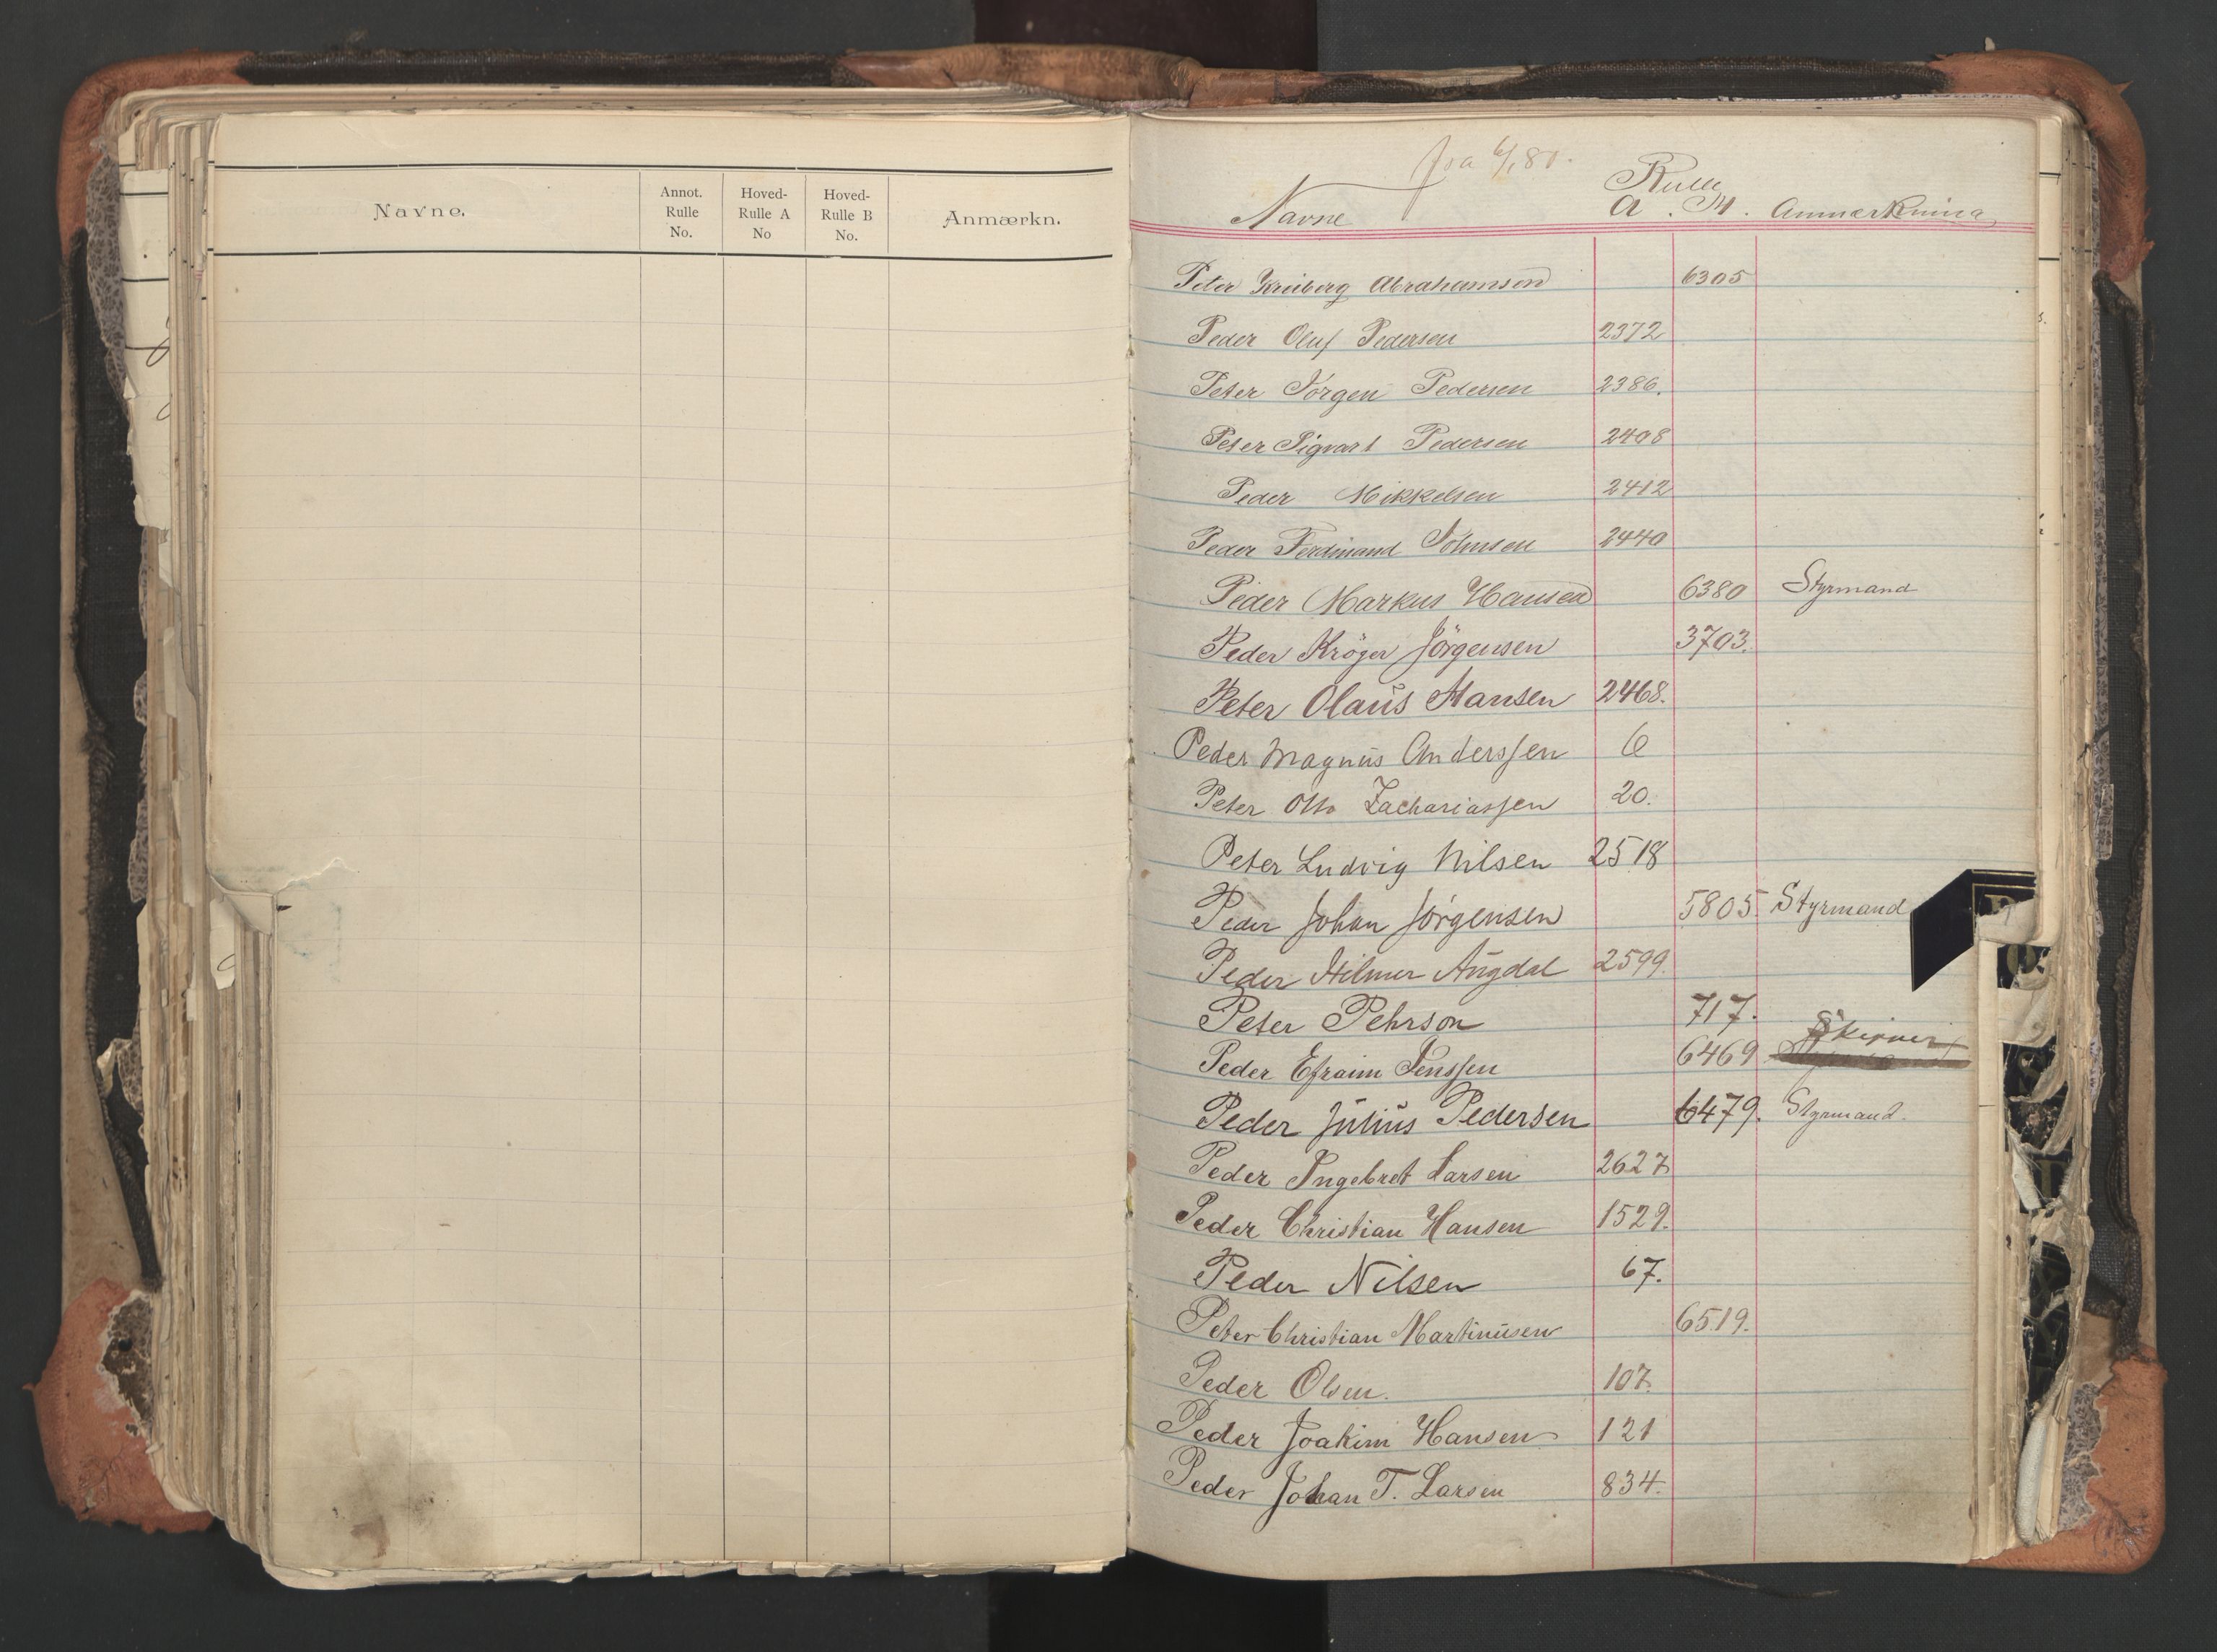 Navne.
Annot. Rulle No.
Hoved- Rulle A No
Hoved- Rulle B No.
Anmærkn.
fra 6/1 80.
Rulle
Navne A. H. Anmærkning
Peter Abrahamsen 6305
Peder Oluf Pedersen 2372
Peter Jörgen Pedersen 2386.
Peter Sigvart Pedersen 2408
Peder Mikkelsen 2412
Peder Ferdinand Johnsen 2440
Peder Markus Hansen 6380 Styrmand
Peder Kröger Jörgensen 3703.
Peter Olaus Hansen 2468.
Peder Magnus Anderssen 6
Peter Otto Zachariassen 20.
Peter Ludvig Nilsen 2518
Peder Johan Jörgensen 5805. Styrmand
Peder Hilmer Augdal 2599.
Peter Pehrson 717.
Skipper
Peder Efraim Jenssen 6469
Peder Julius Pedersen 6479. Styrmand.
Peder Ingebret Larsen 2627
Peder Christian Hansen 1529.
Peder Nilsen 67.
Peter Christian Martinusen 6519.
Peder Olsen. 107.
Peder Joakim Hansen 121
Peder Johan T. Larsen 834.